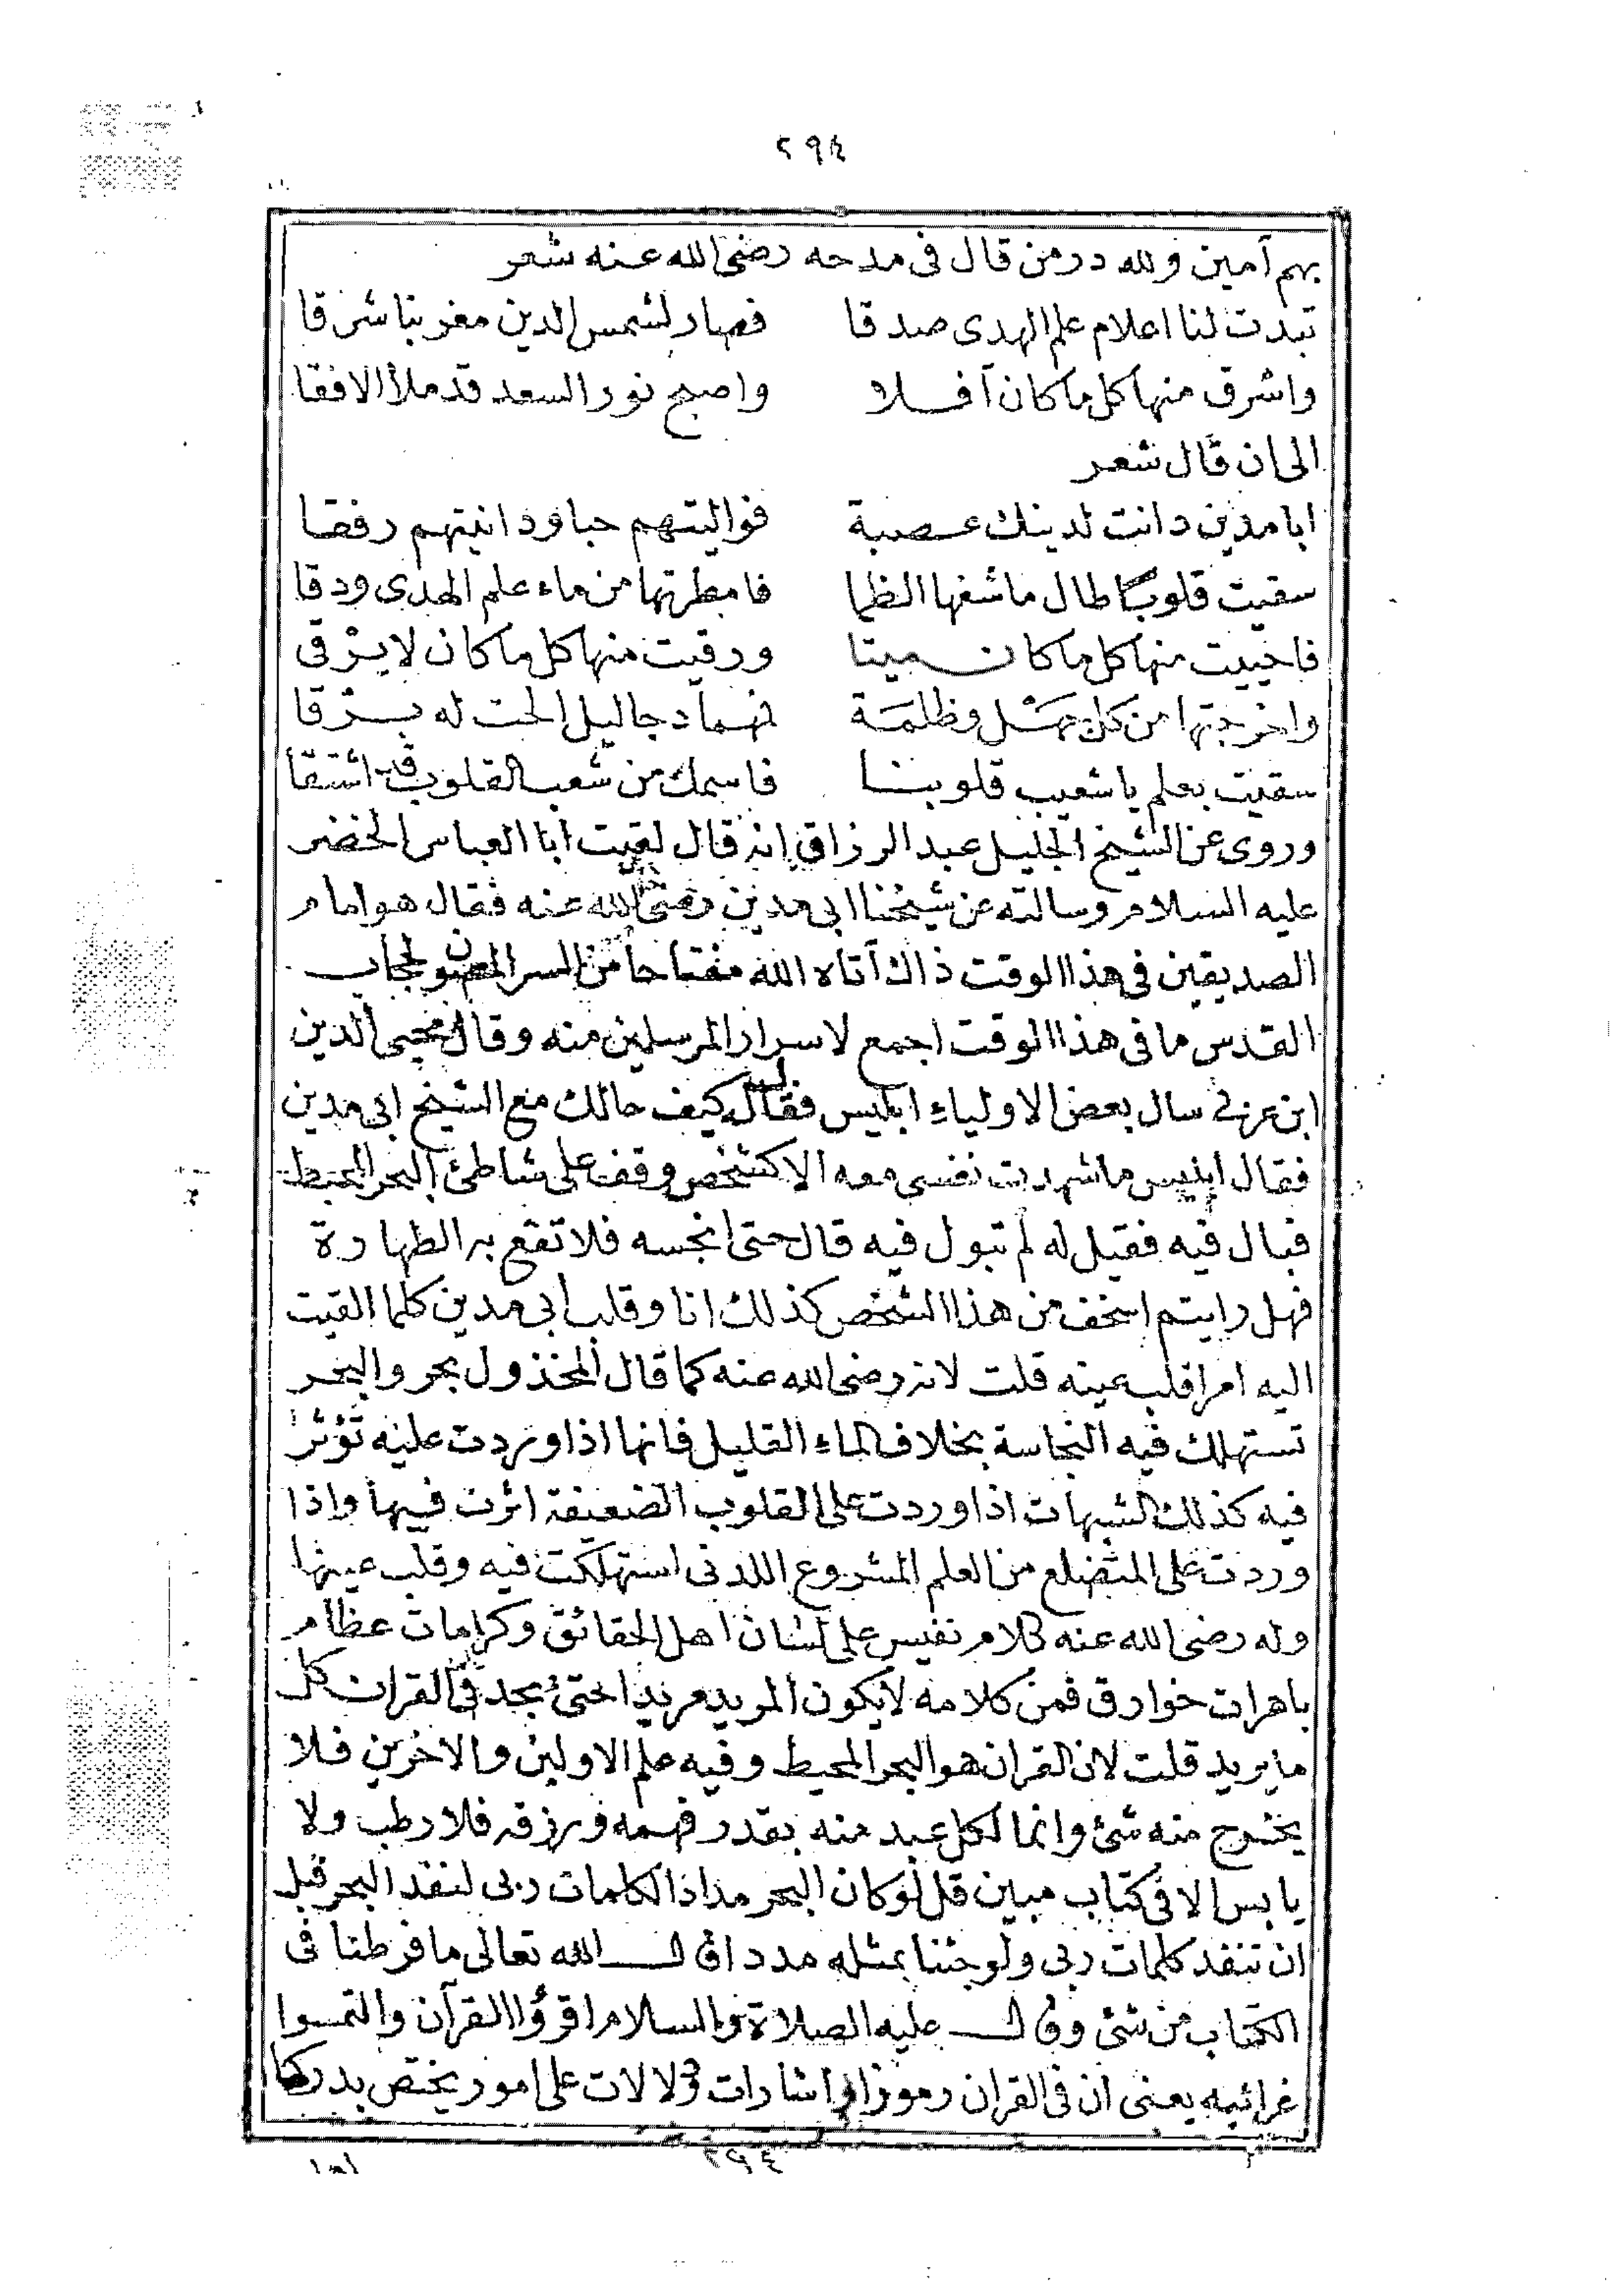 ٢٩٤
بهم آمين ولله در من قال فى مدحه رضى الله عنه شعر
تبدت لنا اعلام علم الهدى صدقا فصار لشمس الدين مغربنا شرقا
واشرق منها كل ما كان آفلا واصبح نور السعد قد ملأ الافقا
الى ان قال شعر
ابا مدين دانت لدينك عصبة فواليتهم حبا ودانيتهم رفقا
سقيت قلوبا طال ما شفها الظما فامطرتها من ماء علم الهدى ودقا
فاحييت منها كل ما كان ميتا ورقيت منها كل ما كان لا يرقى
واخرجتها من كل جهل وظلمة فهما دجا ليل الحت له برقا
سقيت بعلم يا شعيب قلوبنا فاسمك من شعب القلوب قد اشتقا
وروى عن الشيخ الجليل عبد الرزاق انه قال لقيت ابا العباس الخضر
عليه السلام وسالته عن شيخنا ابى مدين رضى الله عنه فقال هو امام
الصديقين فى هذا الوقت ذاك آتاه الله مفتاحا من السر المصون لحجاب
القدس ما فى هذا الوقت اجمع لاسرار المرسلين منه وقال محيى الدين
ابن عربى سال بعض الاولياء ابليس فقال له كيف حالك مع الشيخ ابى مدين
فقال ابليس ما شهدت نفسى معه الا كشخص وقف على شاطئ البحر المحيط
فبال فيه فقيل له لم تبول فيه قال حتى انجسه فلا تقع به الطهارة
فهل رايتم اسخف من هذا الشخص كذلك انا وقلب ابى مدين كلما القيت
اليه امرا قلب عينه قلت لانه رضى الله عنه كما قال المخذول بحر والبحر
تستهلك فيه النجاسة بخلاف الماء القليل فانها اذا وردت عليه تؤثر
فيه كذلك الشبهات اذا وردت على القلوب الضعيفة اثرت فيها واذا
وردت على المتضلع من العلم المشروع اللدنى استهلكت فيه وقلب عينها
وله رضى الله عنه كلام نفيس على لسان اهل الحقائق وكرامات عظام
باهرات خوارق فمن كلامه لا يكون المريد مريدا حتى يجد فى القران كل
ما يريد قلت لان القران هو البحر المحيط وفيه علم الاولين والاخرين فلا
يخرج منه شئ وانما لكل عبد منه بقدر فهمه ورزقه فلا رطب ولا
يابس الا فى كتاب مبين قل لو كان البحر مدادا لكلمات ربى لنفد البحر قبل
ان تنفد كلمات ربى ولو جئنا بمثله مددا قال الله تعالى ما فرطنا فى
الكتاب من شئ وقال عليه الصلاة والسلام اقرؤا القرآن والتمسوا
غرائبه يعنى ان فى القران رموزا واشارات ودلالات على امور يختص بدركها
٢٩٤